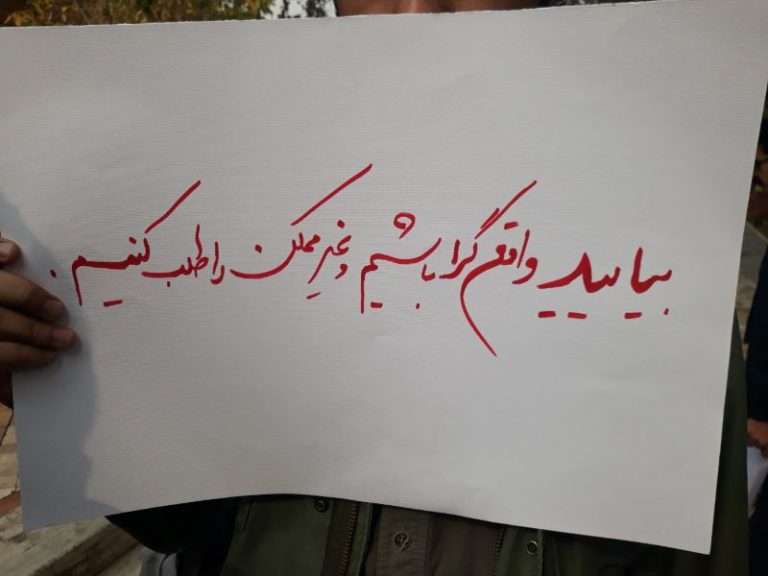 بیایید واقع گرا باشیم و غیرِ ممکن را طلب کنیم .